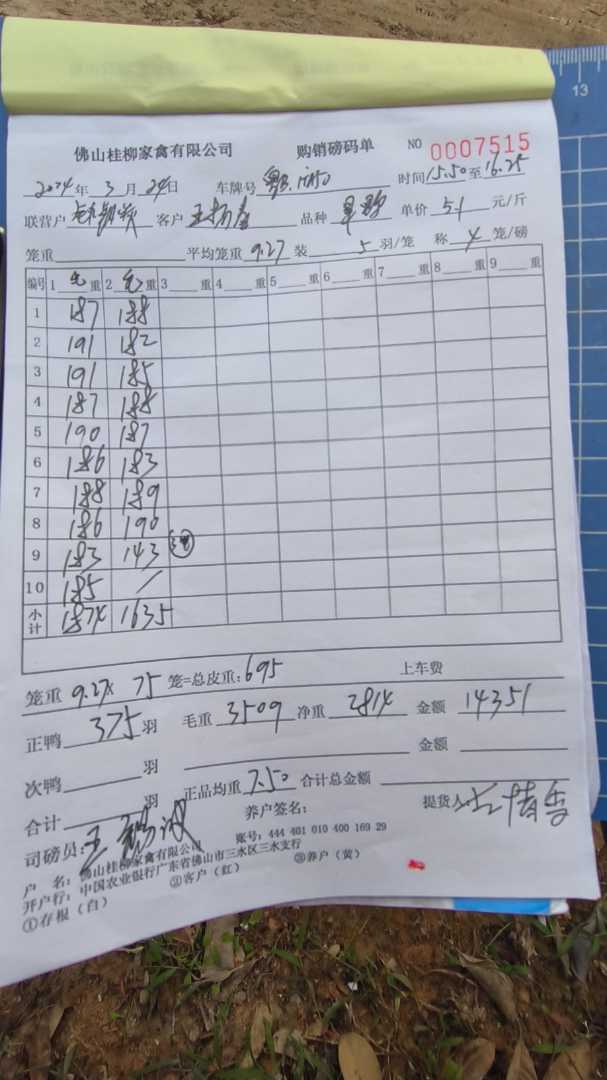 13
佛山桂柳家禽有限公司 购销磅码单 NO 0007515
2024年3月24日 车牌号 时间15.50至16.25
联营户 客户 品种 单价5.1元/斤
笼重 平均笼重9.27 装5羽/笼 称4笼/磅
编号 1毛重 2毛重 3重 4重 5重 6重 7重 8重 9重
1 187 188
2 191 182
3 191 185
4 187 188
5 190 187
6 186 183
7 188 189
8 186 190
9 183 143
10 185 /
小计 1874 1635
笼重9.27×75笼=总皮重:695 上车费
正鸭375羽 毛重3509 净重2814 金额14351
次鸭羽 金额
合计羽 正品均重7.50 合计总金额
司磅员: 养户签名: 提货人
户名:佛山桂柳家禽有限公司 账号:444 401 010 400 169 29
开户行:中国农业银行广东省佛山市三水区三水支行
①存根(白) ②客户(红) ③养户(黄)